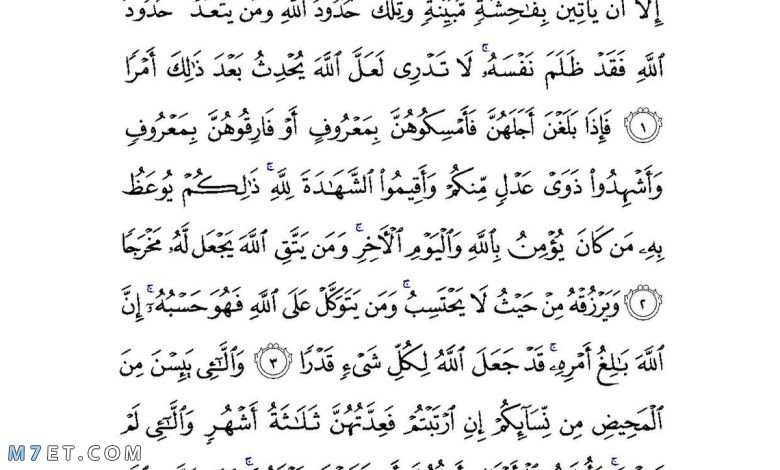 إِلَّآ أَن يَأْتِينَ بِفَٰحِشَةٍ مُّبَيِّنَةٍ وَتِلْكَ حُدُودُ ٱللَّهِ وَمَن يَتَعَدَّ حُدُودَ
ٱللَّهِ فَقَدْ ظَلَمَ نَفْسَهُۥ ۚ لَا تَدْرِى لَعَلَّ ٱللَّهَ يُحْدِثُ بَعْدَ ذَٰلِكَ أَمْرًا
١ فَإِذَا بَلَغْنَ أَجَلَهُنَّ فَأَمْسِكُوهُنَّ بِمَعْرُوفٍ أَوْ فَارِقُوهُنَّ بِمَعْرُوفٍ
وَأَشْهِدُوا۟ ذَوَىْ عَدْلٍ مِّنكُمْ وَأَقِيمُوا۟ ٱلشَّهَٰدَةَ لِلَّهِ ۚ ذَٰلِكُمْ يُوعَظُ
بِهِۦ مَن كَانَ يُؤْمِنُ بِٱللَّهِ وَٱلْيَوْمِ ٱلْءَاخِرِ ۚ وَمَن يَتَّقِ ٱللَّهَ يَجْعَل لَّهُۥ مَخْرَجًا
٢ وَيَرْزُقْهُ مِنْ حَيْثُ لَا يَحْتَسِبُ ۚ وَمَن يَتَوَكَّلْ عَلَى ٱللَّهِ فَهُوَ حَسْبُهُۥٓ ۚ إِنَّ
ٱللَّهَ بَٰلِغُ أَمْرِهِۦ ۚ قَدْ جَعَلَ ٱللَّهُ لِكُلِّ شَىْءٍ قَدْرًا ٣ وَٱلَّٰٓـِٔى يَئِسْنَ مِنَ
ٱلْمَحِيضِ مِن نِّسَآئِكُمْ إِنِ ٱرْتَبْتُمْ فَعِدَّتُهُنَّ ثَلَٰثَةُ أَشْهُرٍ وَٱلَّٰٓـِٔى لَمْ
M7ET.COM